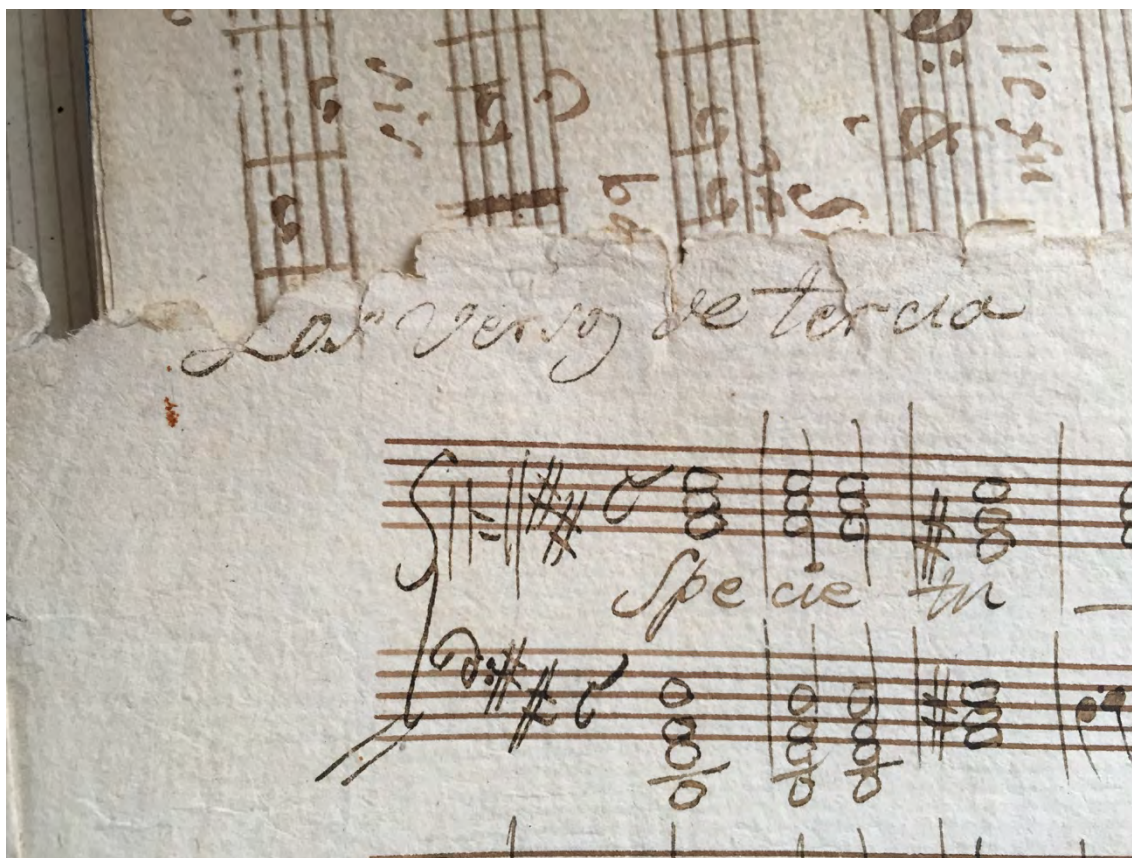 Los versos de tercia
Specie tu